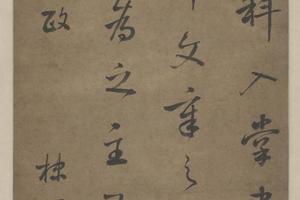 科入掌
文章之
為之主
政